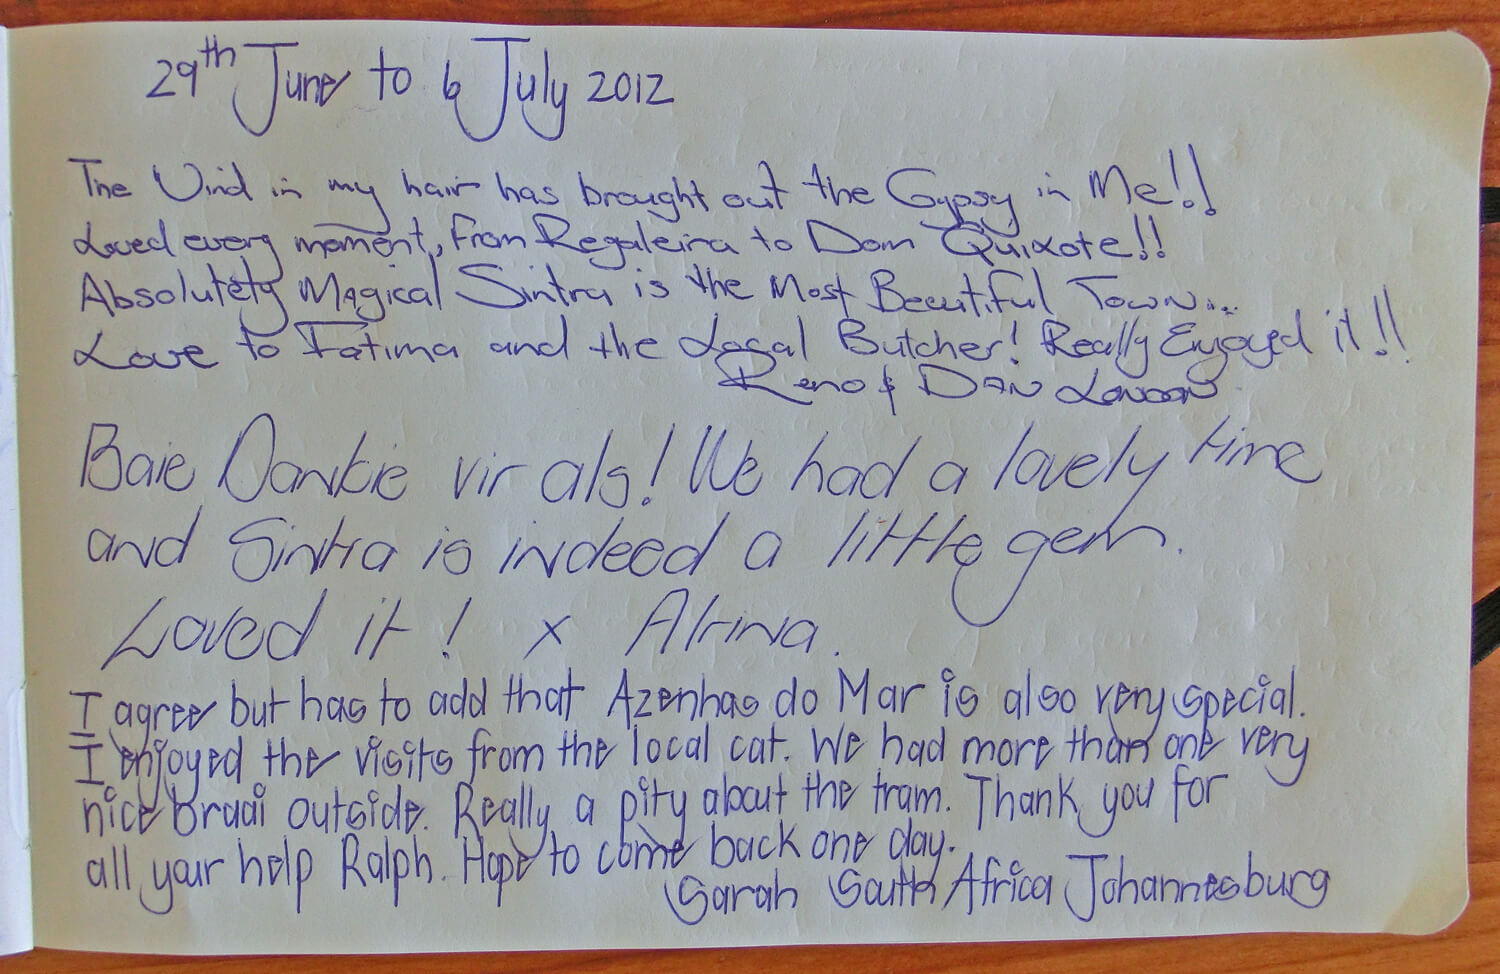 29th June to 6 July 2012
The Wind in my hair has brought out the Gypsy in Me!!
Loved every moment, From Regaleira to Dom Quixote!!
Absolutely Magical Sintra is the Most Beautiful Town...
Love to Fatima and the Local Butcher! Really Enjoyed it!!
Reno & Dan London
Baie Dankie vir als! We had a lovely time
and Sintra is indeed a little gem.
Loved it! x Alrina.
I agree but has to add that Azenhas do Mar is also very special.
I enjoyed the visits from the local cat. We had more than one very
nice braai outside. Really a pity about the tram. Thank you for
all your help Ralph. Hope to come back one day.
Sarah South Africa Johannesburg